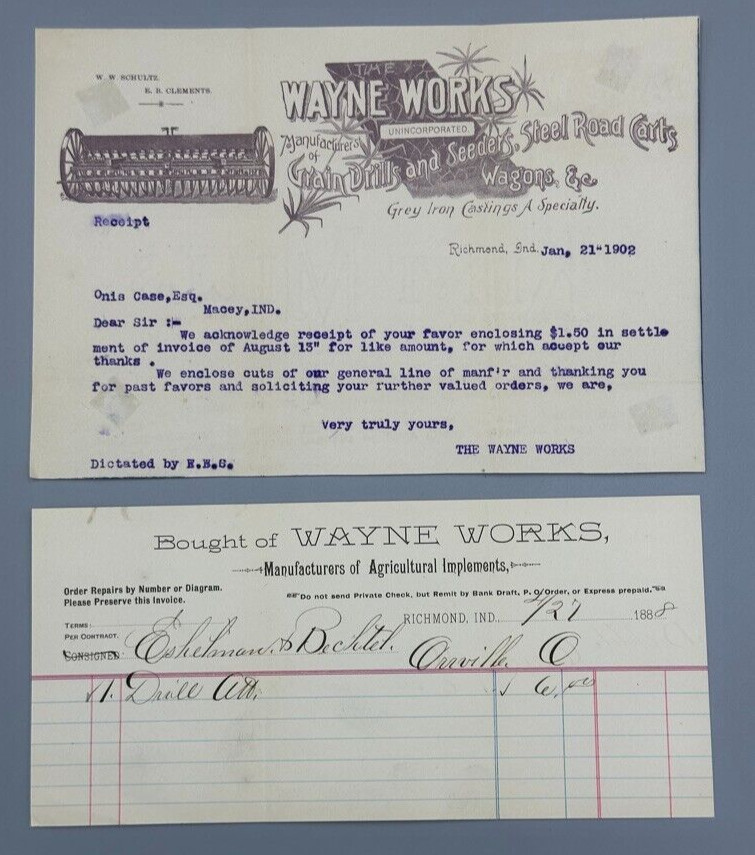 W. W. SCHULTZ.
E. R. CLEMENTS.
THE
WAYNE WORKS
UNINCORPORATED.
Manufacturers
of
Grain Drills and Seeders, Steel Road Carts
Wagons, &c.
Grey Iron Castings A Specialty.
Receipt
Richmond, Ind. Jan, 21" 1902
Onis Case, Esq.
Macey, IND.
Dear Sir :-
We acknowledge receipt of your favor enclosing $1.50 in settle
ment of invoice of August 13" for like amount, for which accept our
thanks .
We enclose cuts of our general line of manf'r and thanking you
for past favors and soliciting your further valued orders, we are,
Very truly yours,
THE WAYNE WORKS
Dictated by
Bought of WAYNE WORKS,
Manufacturers of Agricultural Implements,
Order Repairs by Number or Diagram.
Please Preserve this Invoice.
Do not send Private Check, but Remit by Bank Draft, P. O. Order, or Express prepaid.
TERMS:
PER CONTRACT.
CONSIGNED
RICHMOND, IND., /27 1888
Eshelman & Bechtel. Orrville O
1. Drill Att. 6.00